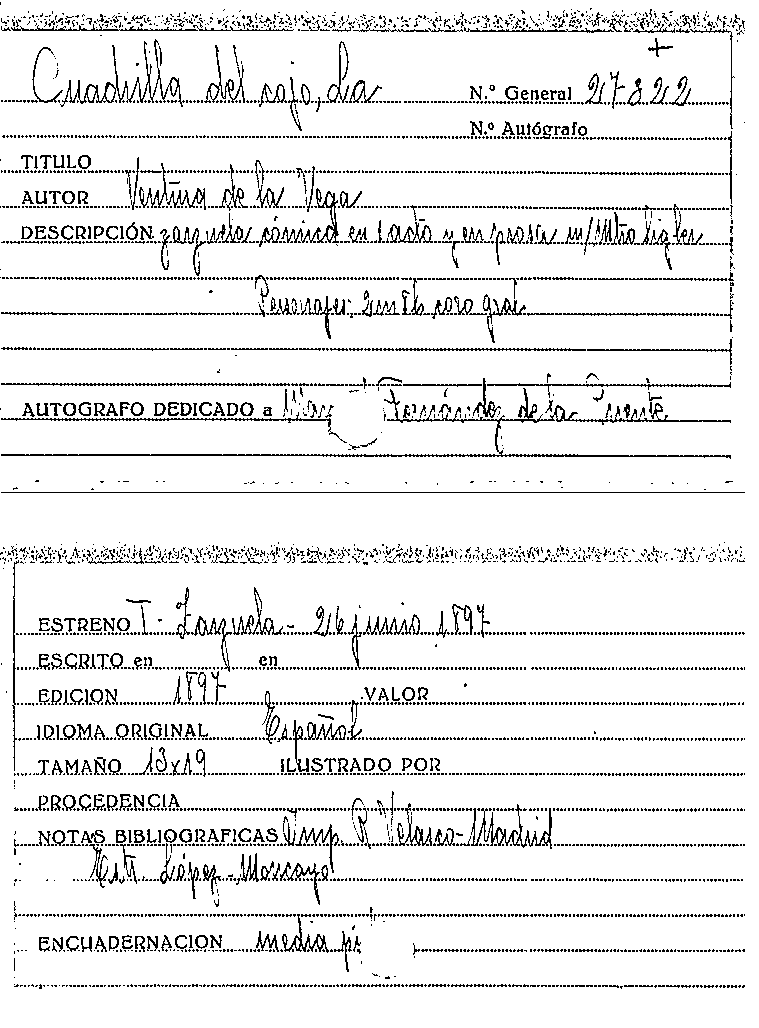 +
Cuadrilla del cojo, La N.º General 27822
N.º Autógrafo
TITULO
AUTOR Ventura de la Vega
DESCRIPCIÓN zarzuela cómica en 1 acto y en prosa m/ Mtro Sigler
Personajes: 2m 8h coro gral
AUTOGRAFO DEDICADO a Fernández de la Puente
ESTRENO T. Zarzuela - 26 junio 1897
ESCRITO en en
EDICION 1897 VALOR
IDIOMA ORIGINAL Español
TAMAÑO 13x19 ILUSTRADO POR
PROCEDENCIA
NOTAS BIBLIOGRAFICAS Imp. R Velasco - Madrid
López - Moncayo
ENCUADERNACION media